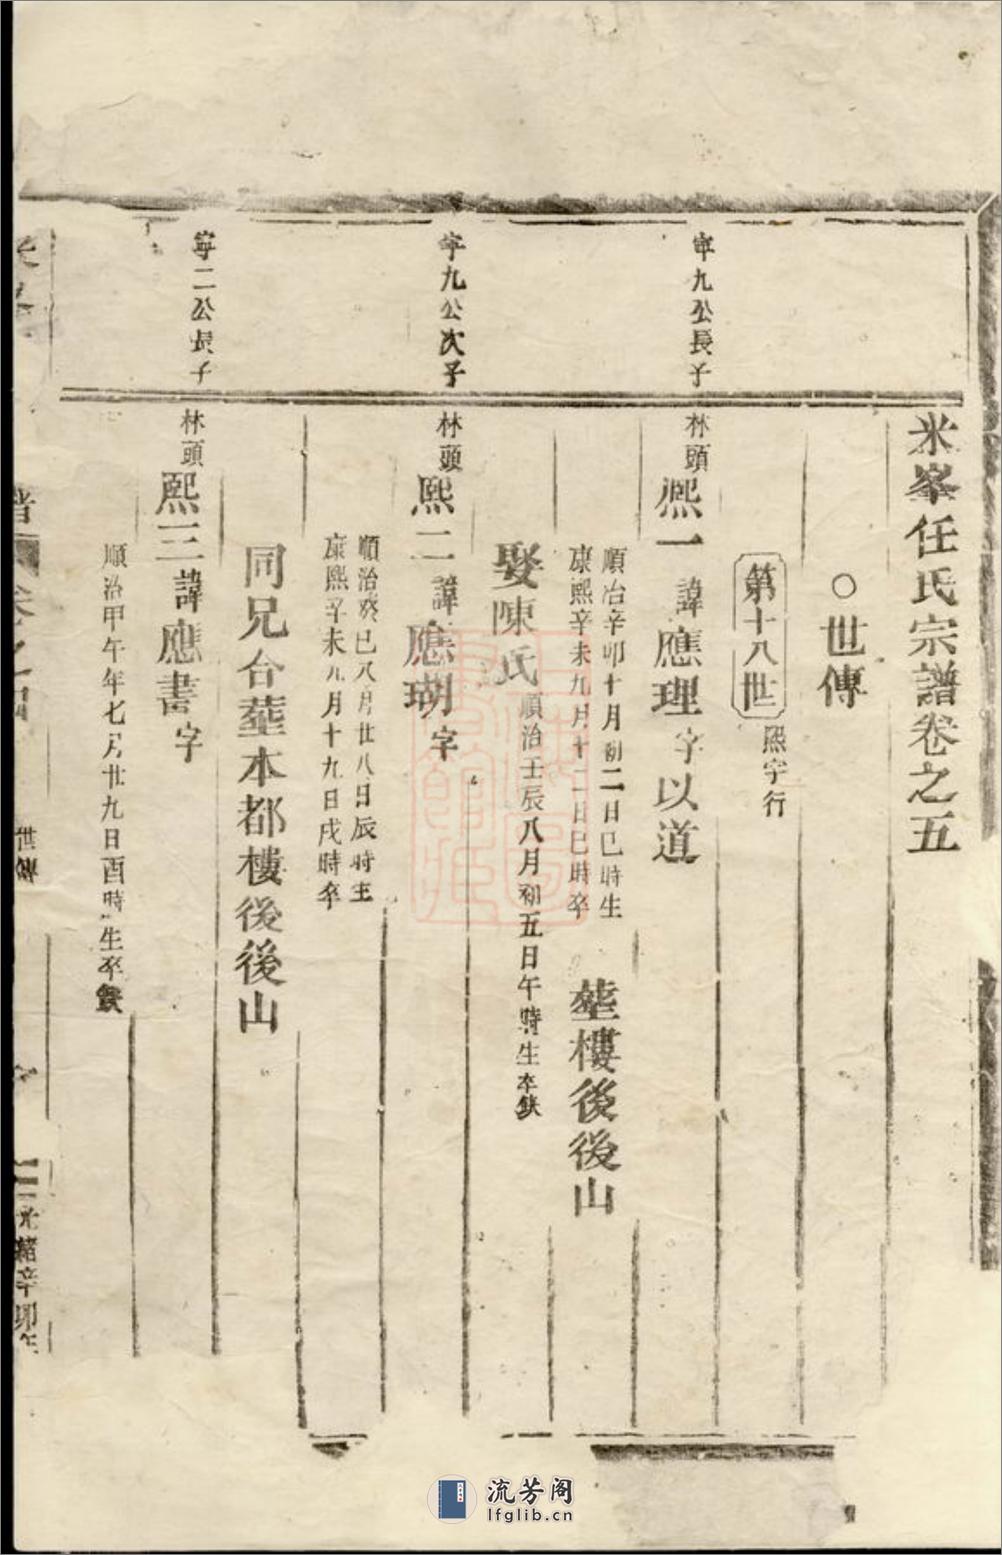 米峯任氏宗譜卷之五
○世傳
第十八世 熙字行
寧九公長子
林頭 熙一 諱應理字以道
順治辛卯十月初二日巳時生
康熙辛未九月十二日巳時卒
塟樓後後山
娶陳氏 順治壬辰八月初五日午時生卒缺
寧九公次子
林頭 熙二 諱應瑚字
順治癸巳八月廿八日辰時生
康熙辛未九月十九日戌時卒
同兄合塟本都樓後後山
寧二公長子
林頭 熙三 諱應書字
順治甲午年七月廿九日酉時生卒缺
世傳
光緒辛卯年
流芳阁
lfglib.cn